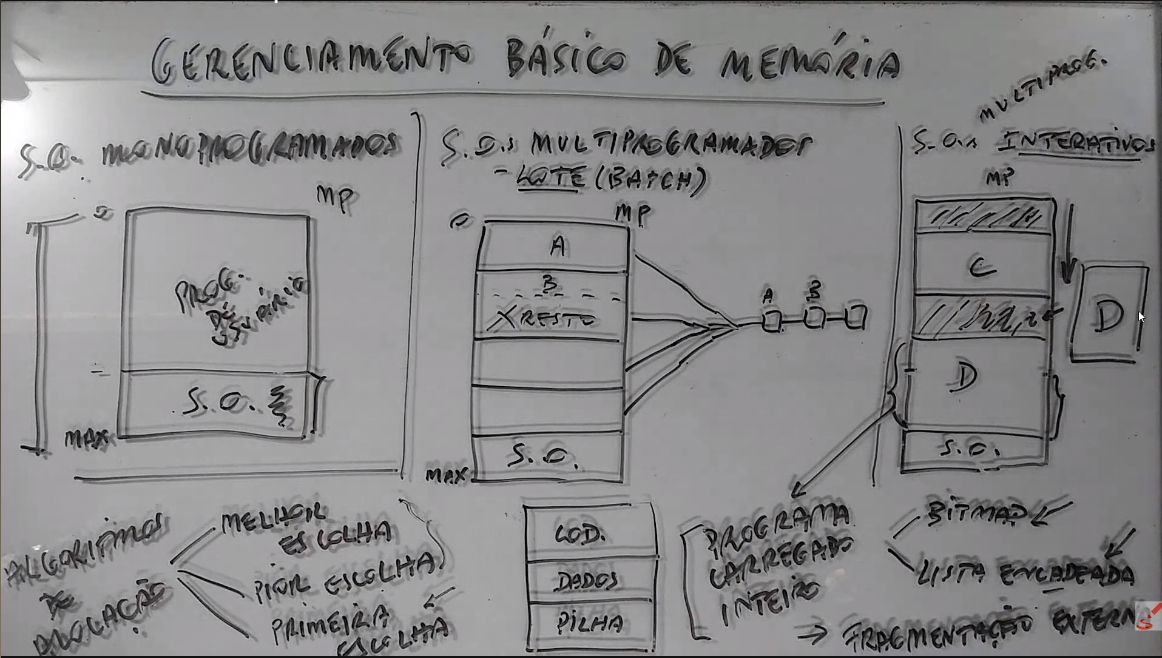 GERENCIAMENTO BÁSICO DE MEMÓRIA
S.O. MONOPROGRAMADOS
MP
0
PROG.
DE
USUÁRIO
S.O.
MAX
S.O.s MULTIPROGRAMADOS
- LOTE (BATCH)
0
MP
A
B
X RESTO
S.O.
MAX
A
B
MULTIPROG.
S.O.s INTERATIVOS
MP
C
D
D
S.O.
ALGORITMOS
DE
ALOCAÇÃO
MELHOR
ESCOLHA
PIOR ESCOLHA
PRIMEIRA
ESCOLHA
COD.
DADOS
PILHA
PROGRAMA
CARREGADO
INTEIRO
BITMAP
LISTA ENCADEADA
⇒ FRAGMENTAÇÃO EXTERNA
S